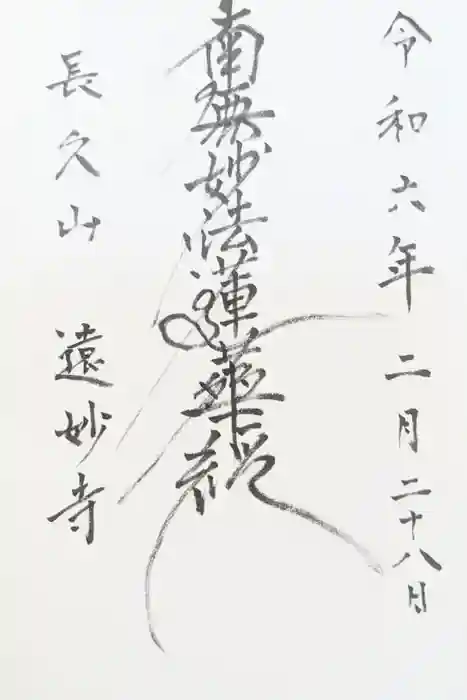 令和六年 二月二十八日
南無妙法蓮華経
長久山 遠妙寺